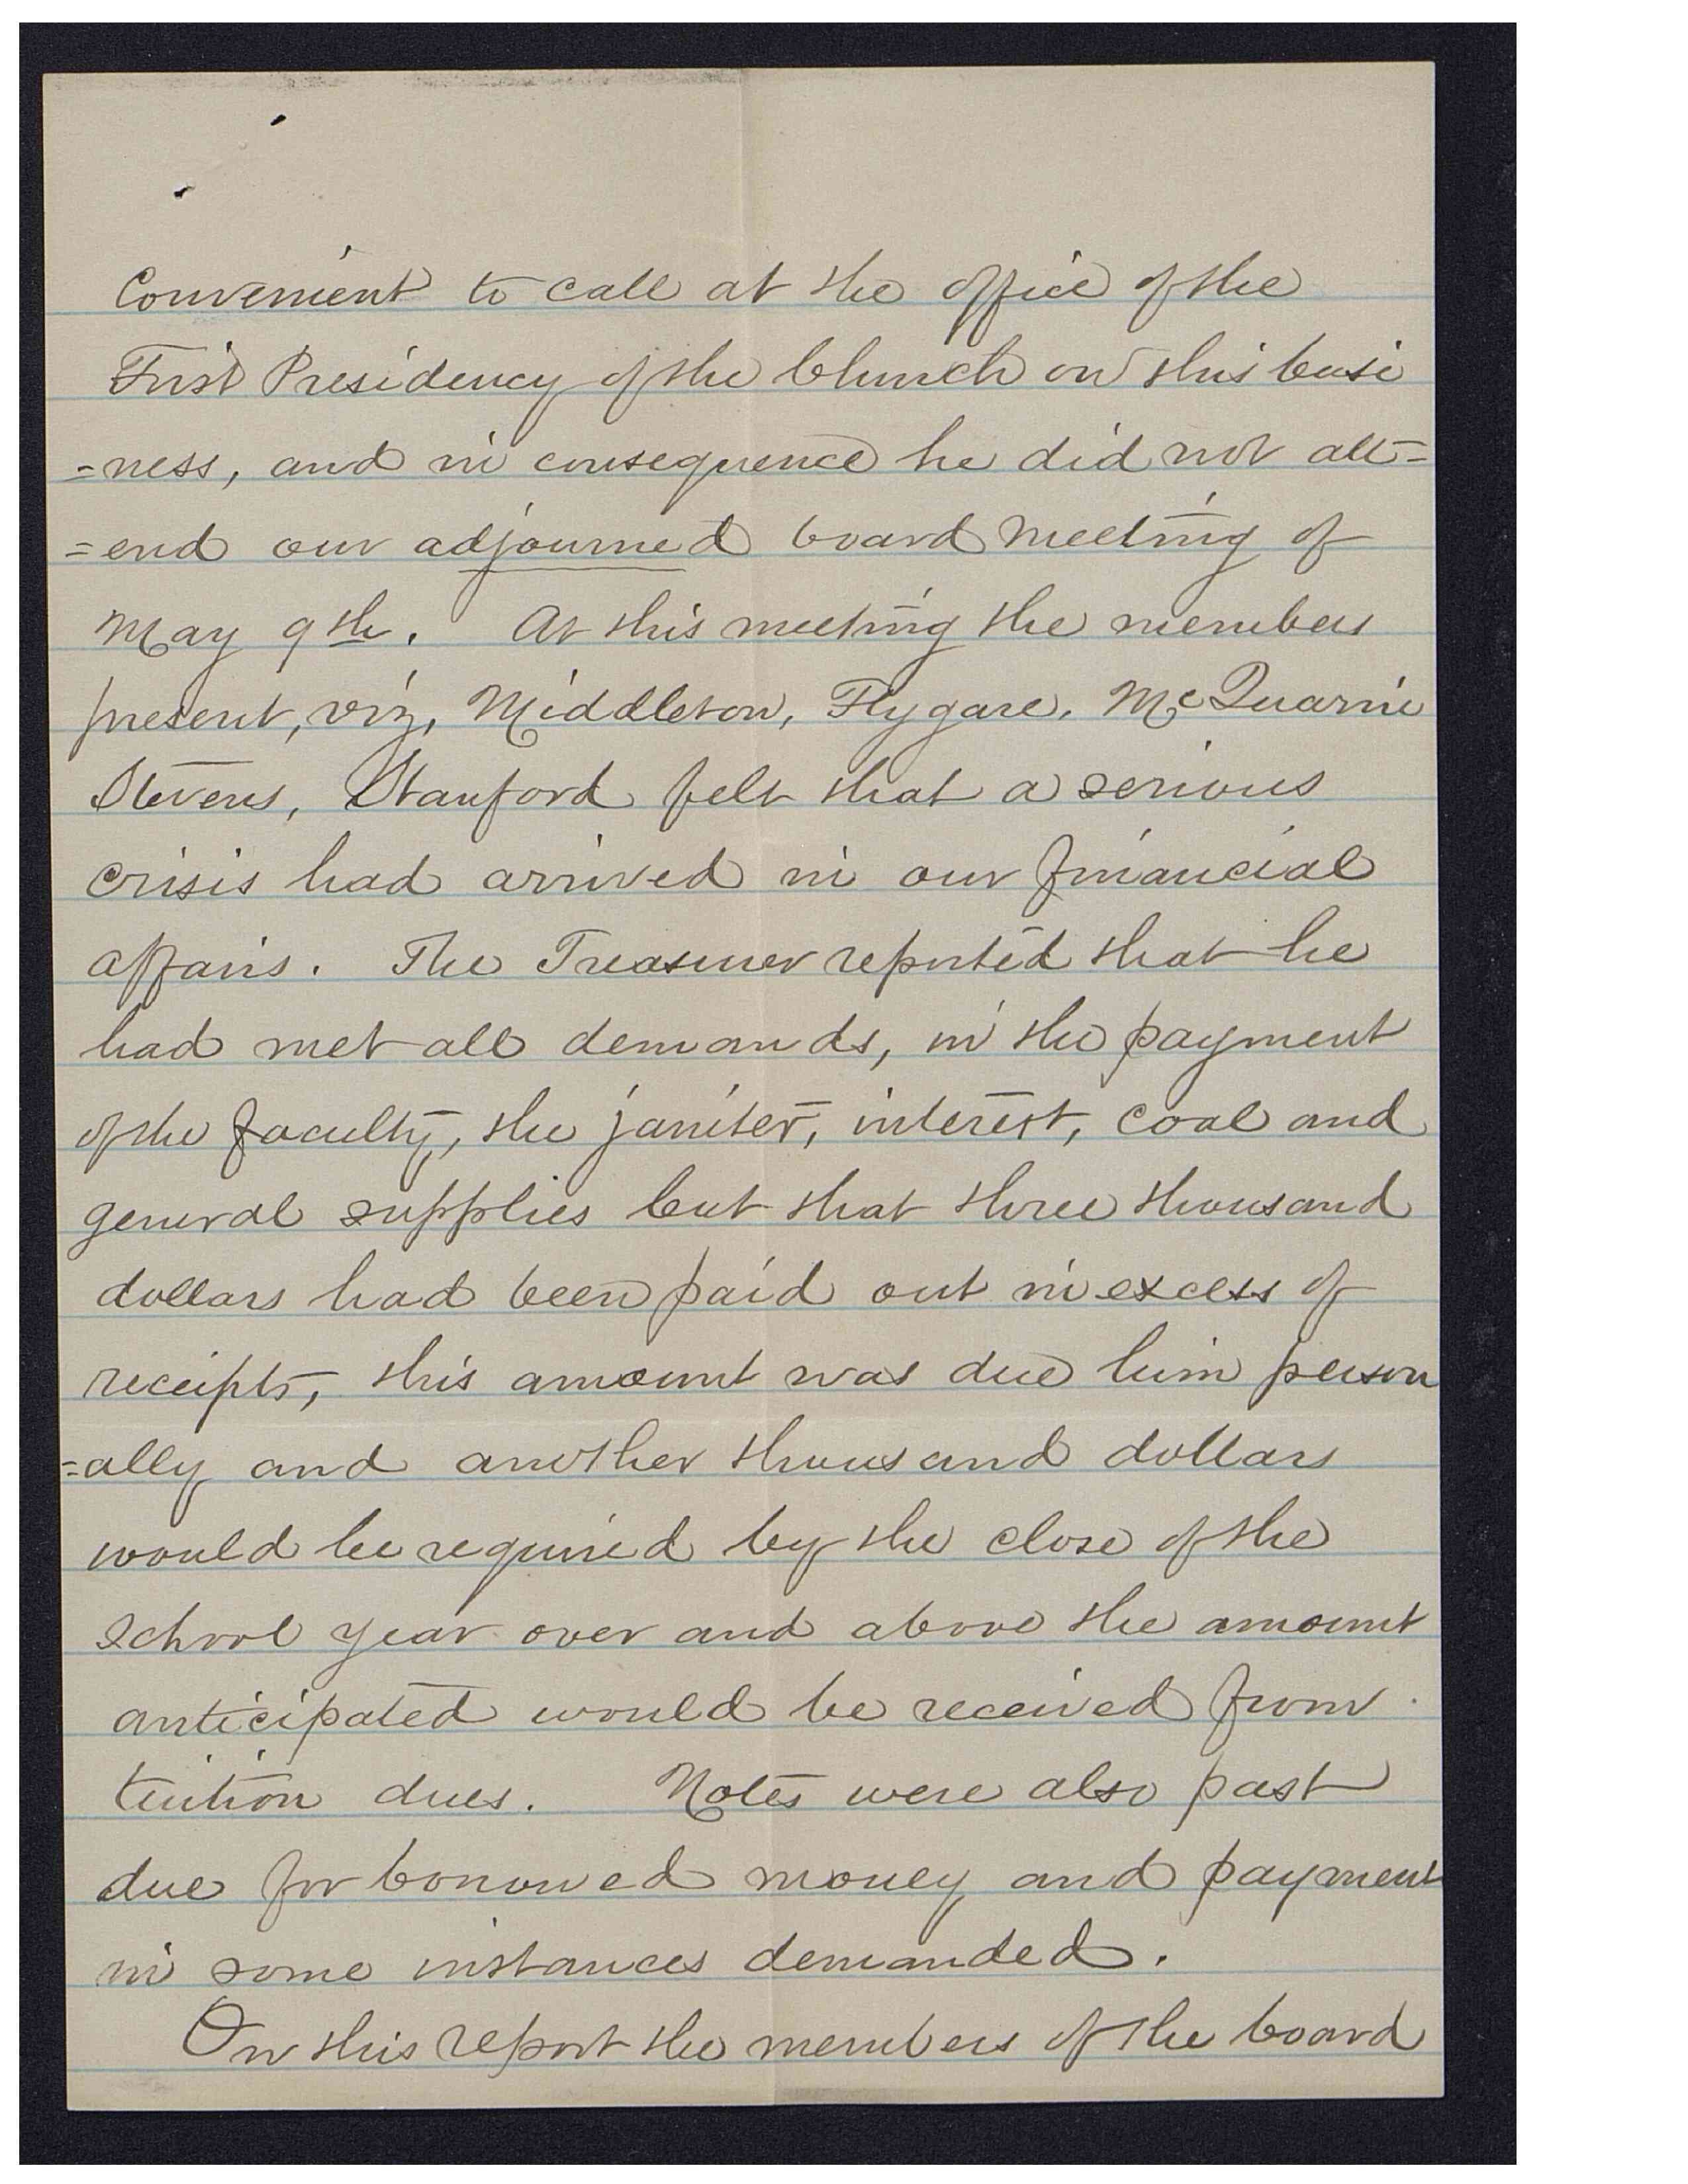 Convenient to call at the office of the
First Presidency of the Church on this busi
=ness, and in consequence he did not att=
=end our adjourned board meeting of
May 9th. At this meeting the members
present, viz, Middleton, Flygare, McQuarrie
Stevens, Stanford felt that a serious
crisis had arrived in our financial
affairs. The Treasurer reported that he
had met all demands, in the payment
of the faculty, the janitor, interest, coal and
general supplies but that three thousand
dollars had been paid out in excess of
receipts, this amount was due him person
=ally and another thousand dollars
would be required by the close of the
school year over and above the amount
anticipated would be received from
tuition dues. Notes were also past
due for borrowed money and payment
in some instances demanded.
On this report the members of the board